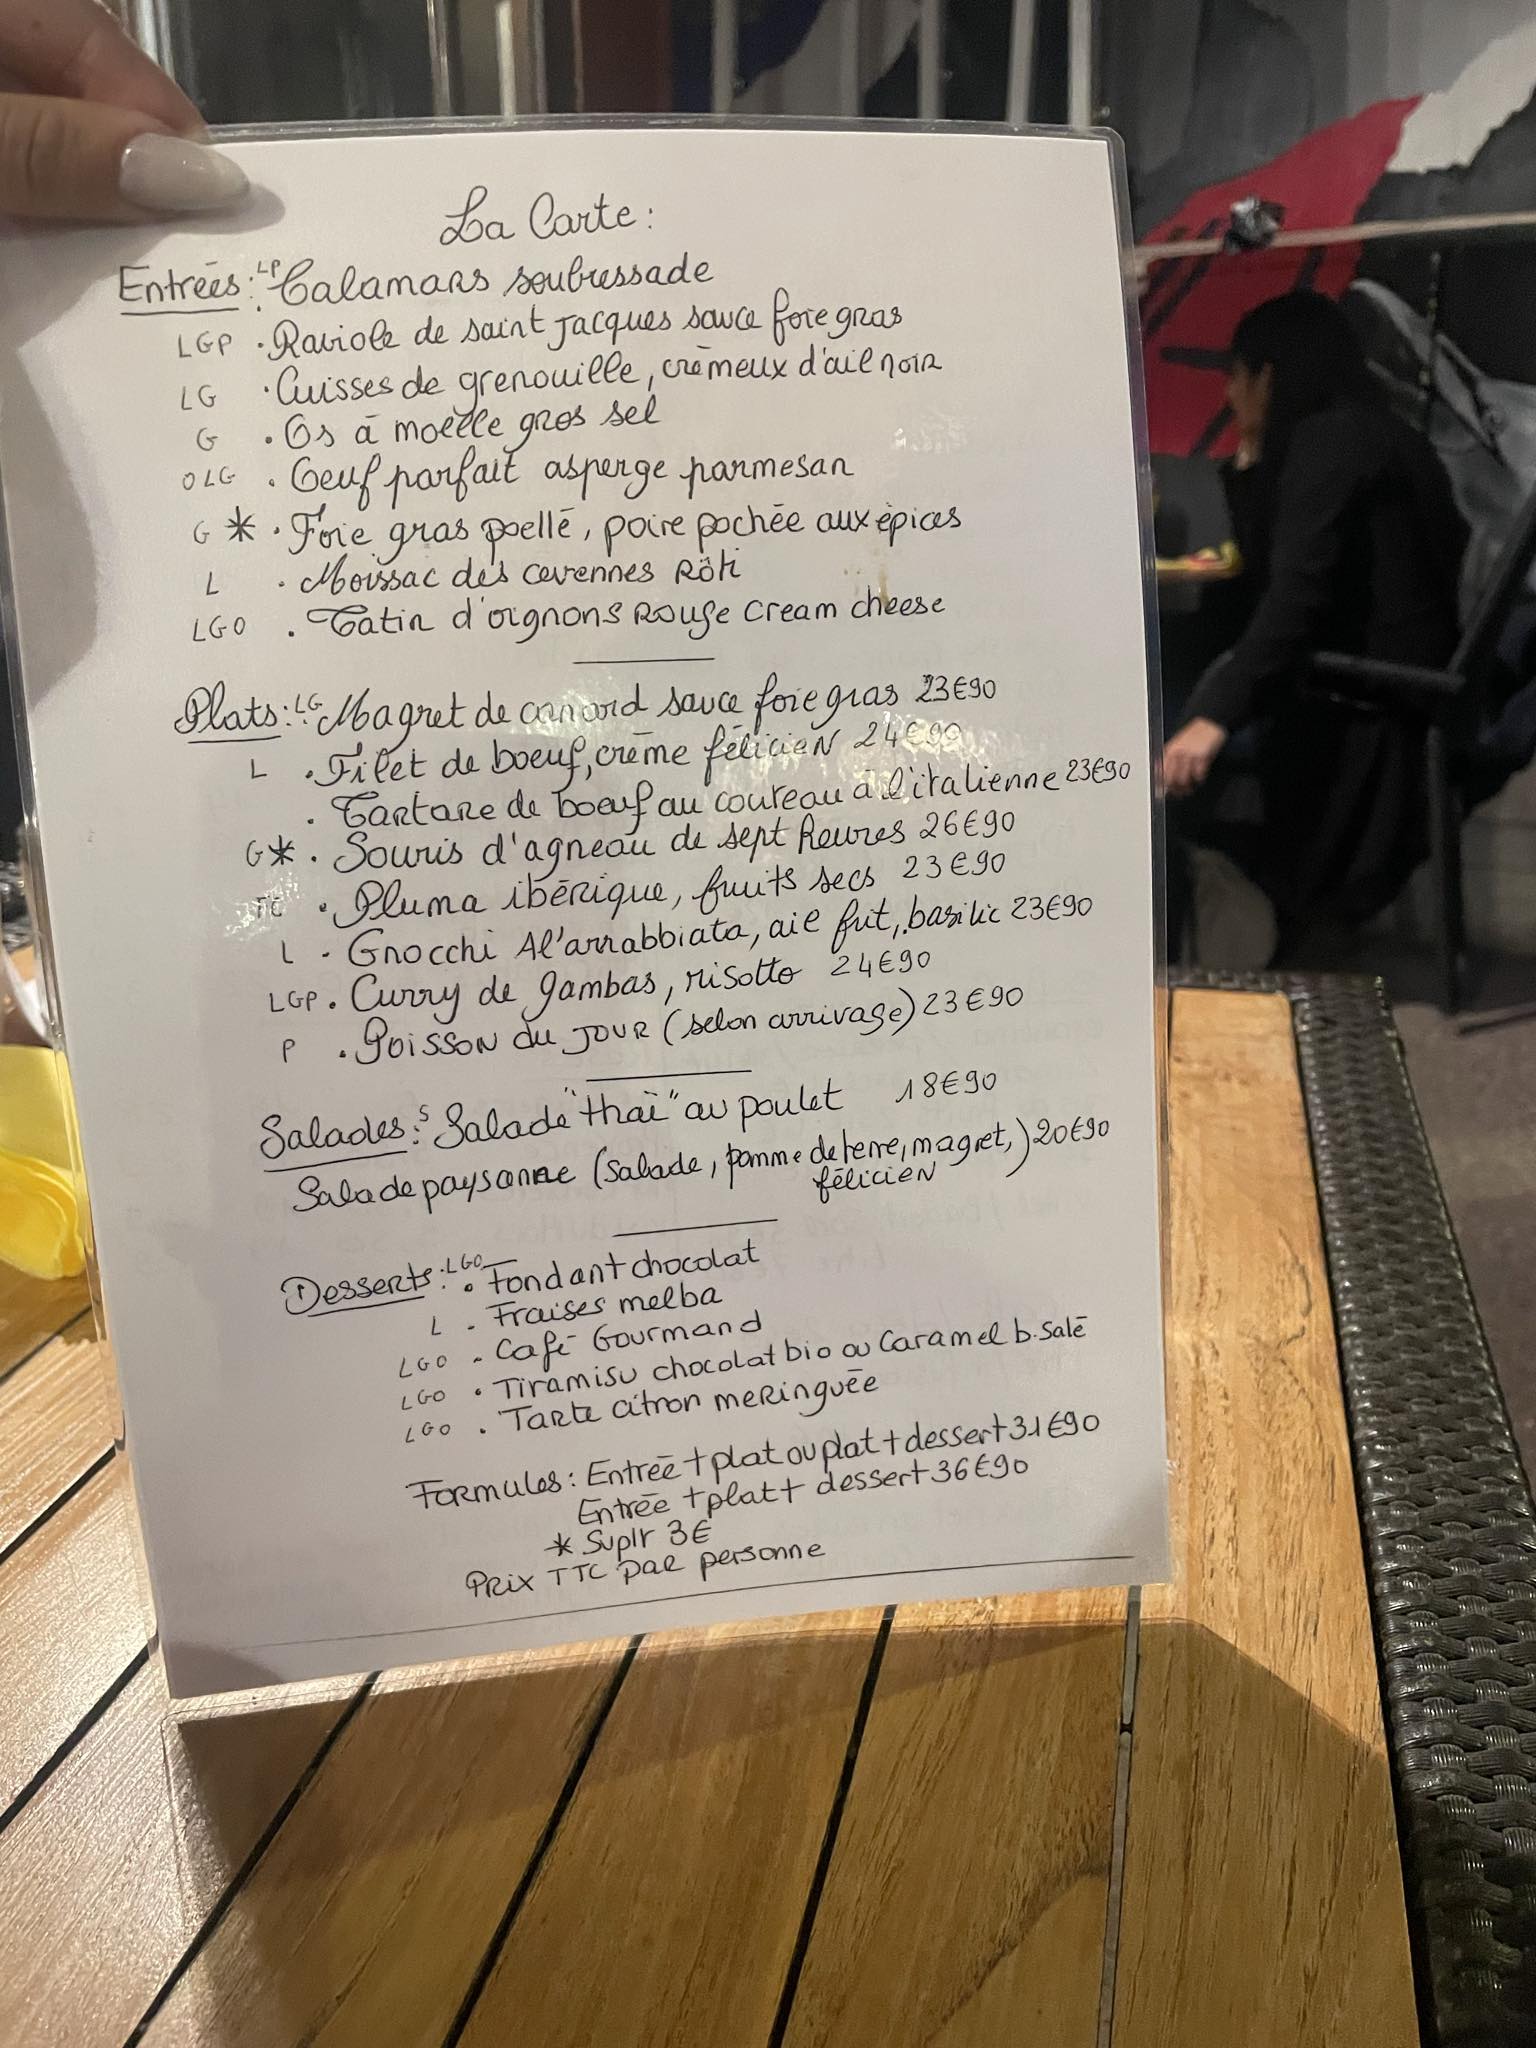 La Carte:
Entrées: LP . Calamars soubressade
LGP . Raviole de saint Jacques sauce foie gras
LG . Cuisses de grenouille, crèmeux d'ail noir
G . Os à moelle gros sel
OLG . Oeuf parfait asperge parmesan
G * . Foie gras poellé, poire pochée aux épices
L . Moissac des cevennes Rôti
LGO . Tatin d'oignons Rouge cream cheese
Plats: LG . Magret de canard sauce foie gras 23€90
L . Filet de boeuf, crème félicien 24€90
. Tartare de boeuf au couteau à l'italienne 23€90
G* . Souris d'agneau de sept heures 26€90
. Pluma ibérique, fruits secs 23€90
L . Gnocchi Al'arrabbiata, ail fut, basilic 23€90
LGP . Curry de gambas, risotto 24€90
P . Poisson du jour (selon arrivage) 23€90
Salades: S Salade "thaï" au poulet 18€90
Salade paysanne (salade, pomme de terre, magret, félicien) 20€90
Desserts: LGO . Fondant chocolat
L . Fraises melba
LGO . Café Gourmand
LGO . Tiramisu chocolat bio ou Caramel b.salé
LGO . Tarte citron meringuée
Formules: Entrée + plat ou plat + dessert 31€90
Entrée + plat + dessert 36€90
* Suplr 3€
Prix TTC par personne